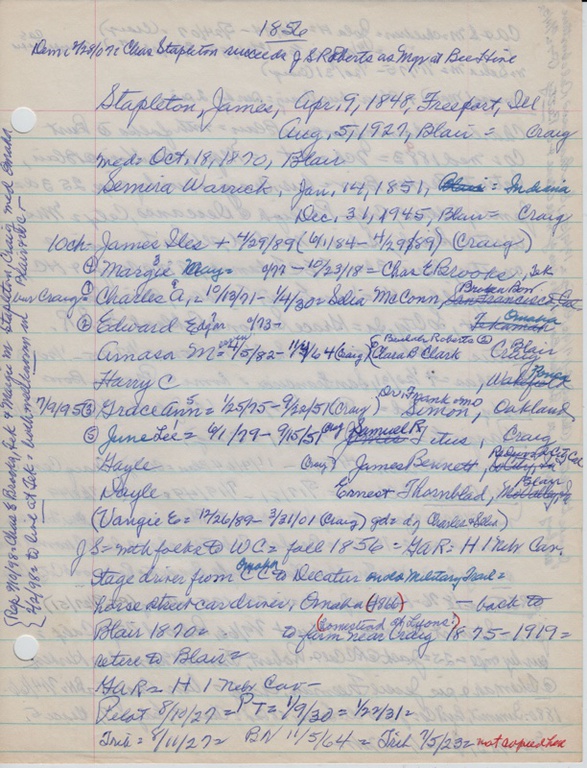 1856
Dem: 2/28/07: Chas Stapleton succeeds J S Roberts as Mgr at Bee Hive
Stapleton, James, Apr, 9, 1848, Freeport, Ill
Aug, 5, 1927, Blair = Craig
med = Oct, 18, 1870, Blair
Semira Warrick, Jan, 14, 1851, Indiana
Dec, 31, 1945, Blair = Craig
10ch = James Iles + 4/29/89 (6/1/84 - 4/29/89) (Craig)
④ Margie 3 May = 9/77 - 10/23/18 = Chas E Brooks, Tek
Craig = ① Charles A, = 10/13/71 - 1/4/30 = Selia McConn, Broken Bow San Francisco, Cal
② Edward Edgar 9/73 - Omaha Tekamah
Amasa M = 4/5/82 - 11/ /64 (Craig) (Builder Roberts Clara B Clark Blair Craig
Harry C , Ponca Wakefield
7/9/95 ③ Grace Ann 5 = 1/25/75 - 9/22/51 (Craig) Dr, Frank mo Simon, Oakland,
⑤ June Lee = 6/1/79 - 9/15/51 Craig Samuel R, Titus, Craig
Gayle (Craig) James Bennett,
Doyle Ernest Thornblad, Blair
(Vangie E = 12/26/89 - 3/31/01 (Craig) gd = d of Charles & Selia)
J S = with folks to WC = fall 1856 = GAR = H 1 Nebr Cav,
Stage driver from Omaha C C to Decatur on old Military Trail =
horse street car driver, Omaha (1866) - back to
Blair 1870 = to farm near Craig (homestead of Lyons) 1875-1919 =
retire to Blair =
GAR = H 1 Nebr Cav -
Pilot 8/10/27 = PT = 1/9/30 = 1/22/31 =
Trib = 8/11/27 = BN 11/5/64 = Trib 7/5/23 = not copied here
{Rep 9/10/98 = Chas E Brooks, Tek & Margie M Stapleton, Craig med Omaha
= to live at Tek = well known in Blair & WC -